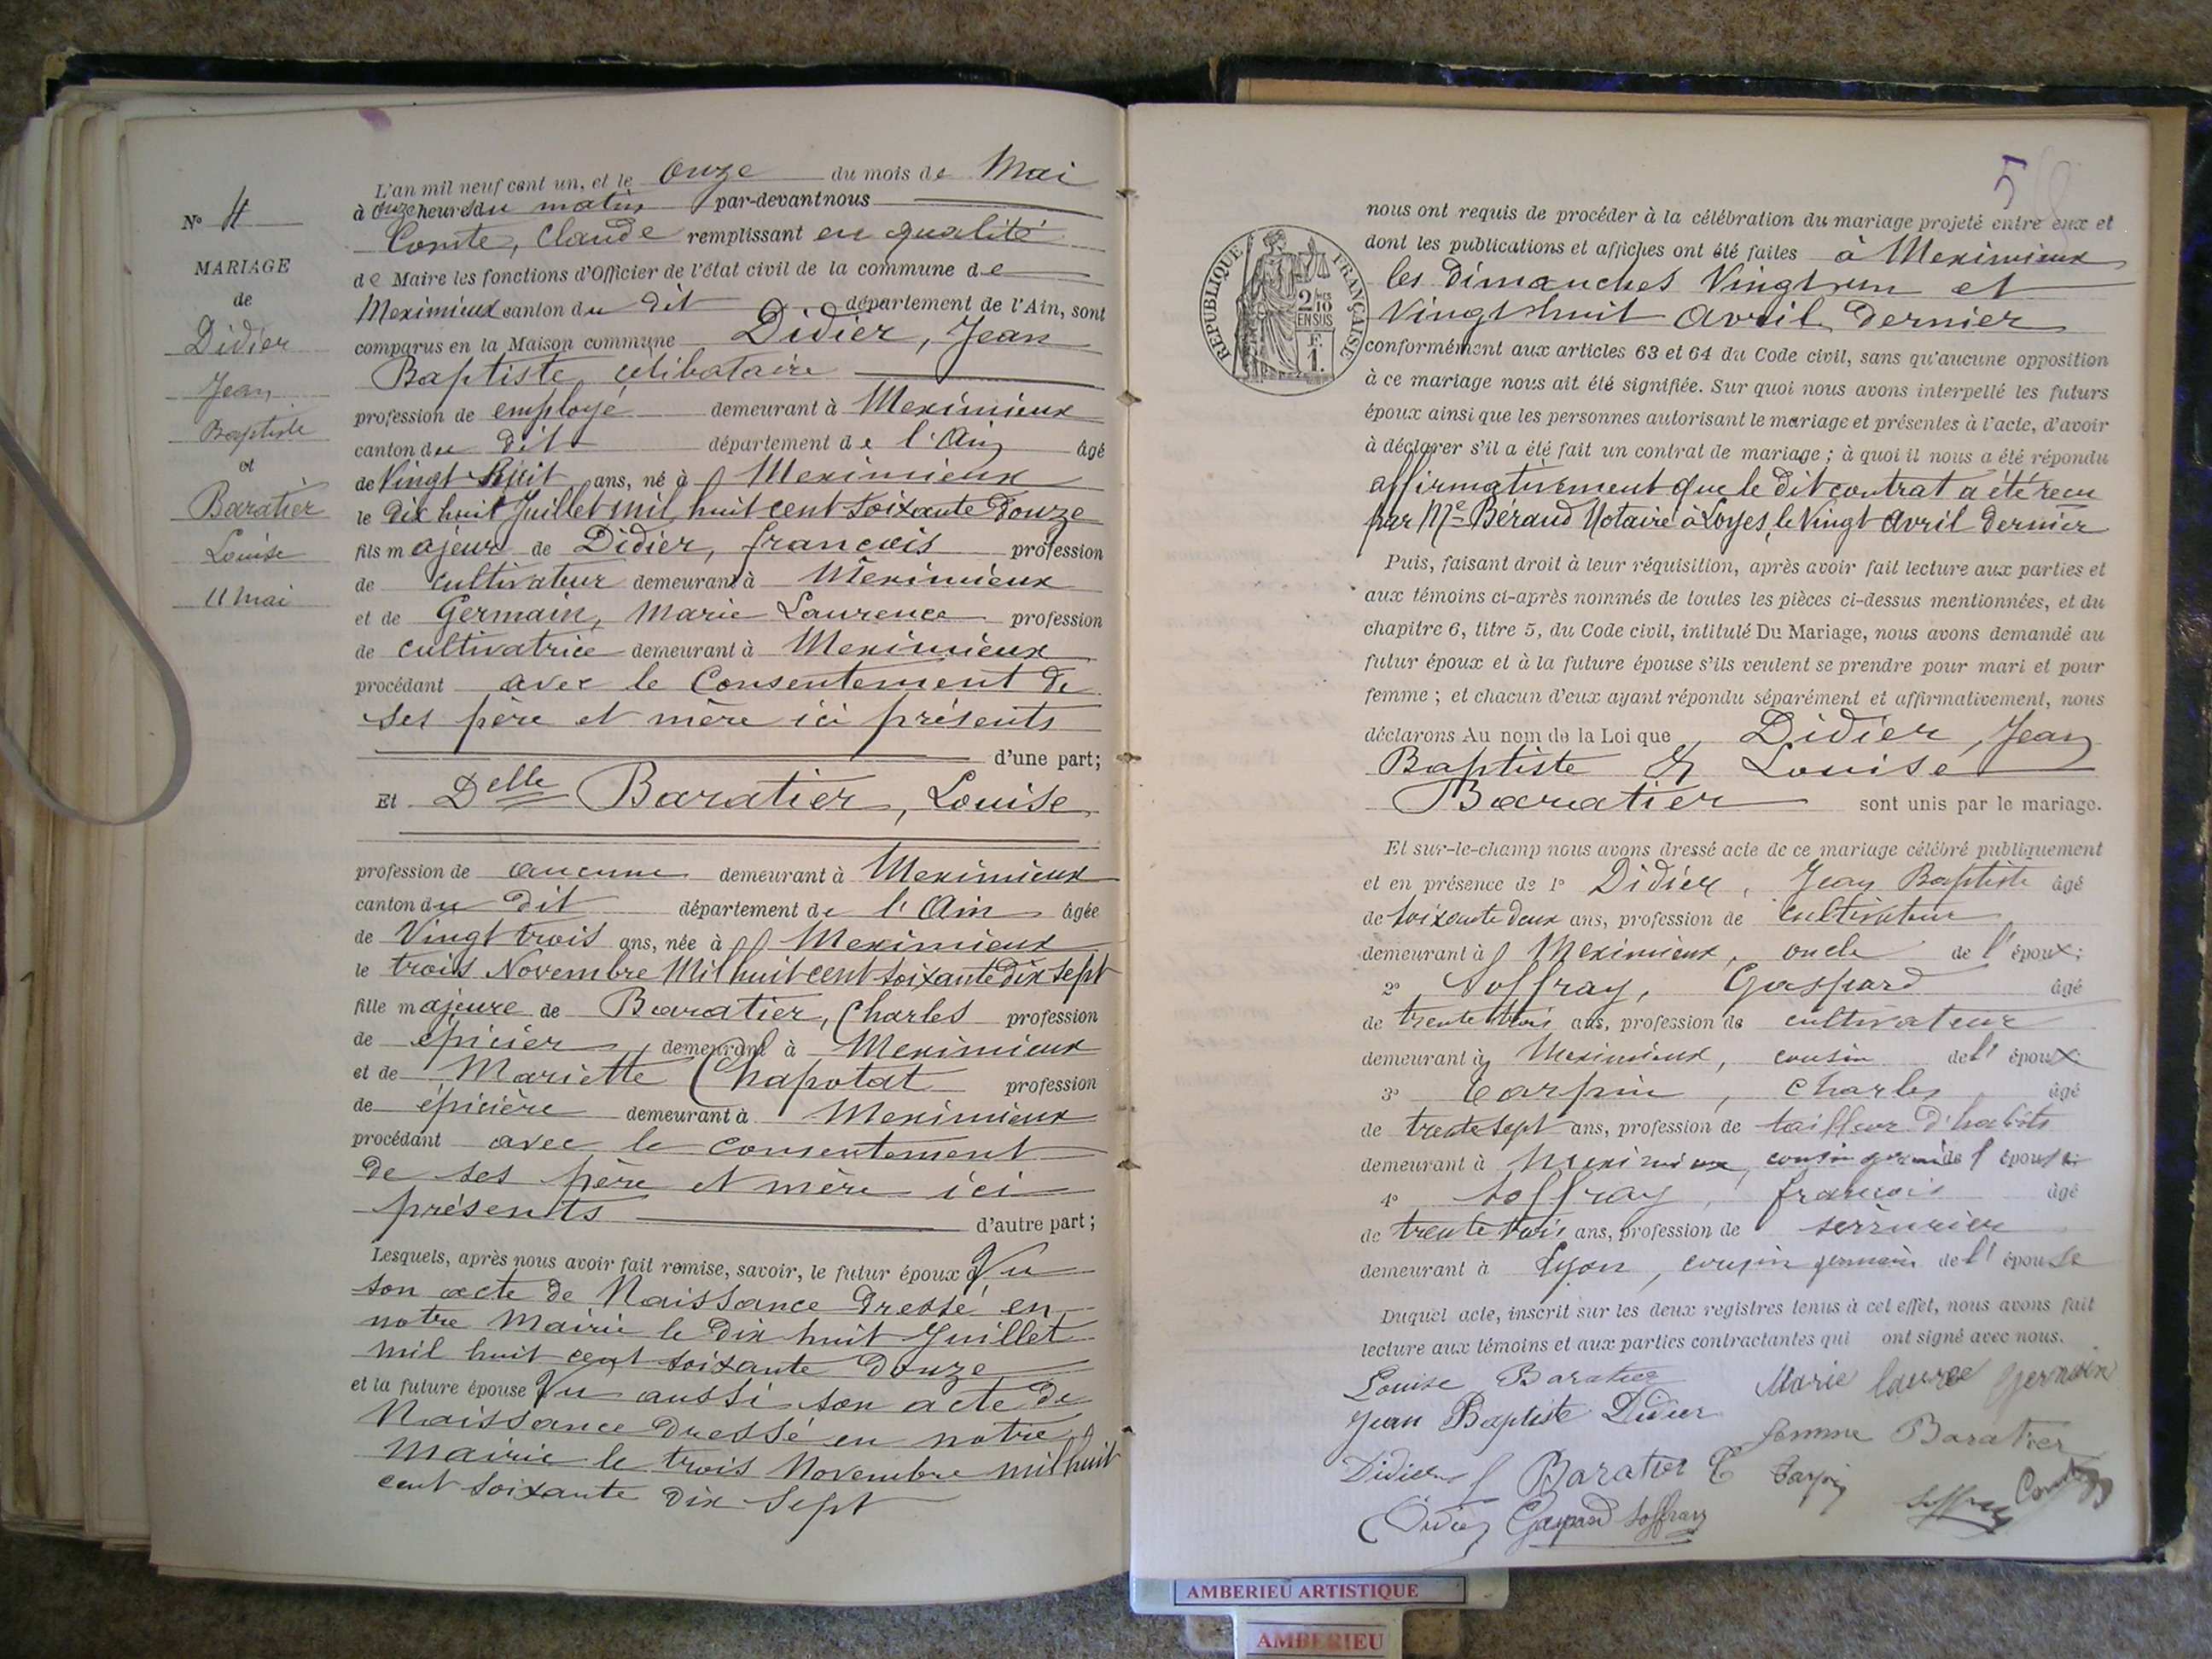 N° 4
MARIAGE
de
Didier
Jean
Baptiste
et
Baratier
Louise
11 Mai
L'an mil neuf cent un, et le Onze du mois de Mai
à onze heures du matin par-devant nous
Comte, Claude remplissant en qualité
de Maire les fonctions d'Officier de l'état civil de la commune de
Meximieux canton du dit département de l'Ain, sont
comparus en la Maison commune Didier, Jean
Baptiste, célibataire
profession de employé demeurant à Meximieux
canton du dit département de l'Ain âgé
de Vingt huit ans, né à Meximieux
le dix huit Juillet mil huit cent soixante douze
fils majeur de Didier, françois profession
de cultivateur demeurant à Meximieux
et de Germain, Marie Laurence profession
de cultivatrice demeurant à Meximieux
procédant avec le Consentement de
ses père et mère ici présents
d'une part;
Et Delle Baratier, Louise
profession de aucune demeurant à Meximieux
canton du dit département de l'Ain âgée
de Vingt trois ans, née à Meximieux
le trois Novembre Mil huit cent soixante dix sept
fille majeure de Baratier, Charles profession
de épicier demeurant à Meximieux
et de Mariette Chapotat profession
de épicière demeurant à Meximieux
procédant avec le consentement
de ses père et mère ici
présents d'autre part;
Lesquels, après nous avoir fait remise, savoir, le futur époux Vu
son acte de Naissance dressé en
notre Mairie le dix huit Juillet
mil huit cent soixante douze
et la future épouse Vu aussi son acte de
Naissance dressé en notre
Mairie le trois Novembre mil huit
cent soixante dix sept
5
RÉPUBLIQUE FRANÇAISE
2/10
EN SUS
F.
1.
nous ont requis de procéder à la célébration du mariage projeté entre eux et
dont les publications et affiches ont été faites à Meximieux
les dimanches Vingt un et
Vingt huit Avril dernier
conformément aux articles 63 et 64 du Code civil, sans qu'aucune opposition
à ce mariage nous ait été signifiée. Sur quoi nous avons interpellé les futurs
époux ainsi que les personnes autorisant le mariage et présentes à l'acte, d'avoir
à déclarer s'il a été fait un contrat de mariage ; à quoi il nous a été répondu
affirmativement que le dit contrat a été recu
par Me Beraud Notaire à Loyes, le Vingt Avril dernier
Puis, faisant droit à leur réquisition, après avoir fait lecture aux parties et
aux témoins ci-après nommés de toutes les pièces ci-dessus mentionnées, et du
chapitre 6, titre 5, du Code civil, intitulé Du Mariage, nous avons demandé au
futur époux et à la future épouse s'ils veulent se prendre pour mari et pour
femme ; et chacun d'eux ayant répondu séparément et affirmativement, nous
déclarons Au nom de la Loi que Didier, Jean
Baptiste & Louise
Baratier sont unis par le mariage.
Et sur-le-champ nous avons dressé acte de ce mariage célébré publiquement
et en présence de 1° Didier, Jean Baptiste âgé
de soixante deux ans, profession de cultivateur
demeurant à Meximieux, oncle de l'époux;
2° Soffray, Gaspard âgé
de trente trois ans, profession de cultivateur
demeurant à Meximieux, cousin de l'époux;
3° Carpin, Charles âgé
de trente sept ans, profession de tailleur d'habits
demeurant à Meximieux, cousin germain de l'épouse;
4° Soffray, françois âgé
de trente trois ans, profession de serrurier
demeurant à Lyon, cousin germain de l'épouse
Duquel acte, inscrit sur les deux registres tenus à cet effet, nous avons fait
lecture aux témoins et aux parties contractantes qui ont signé avec nous.
Louise Baratier Marie laurece germain
Jean Baptiste Didier femme Baratier
Didier f Baratier C Carpin Soffray Comte
Didier Gaspard Soffray
AMBERIEU ARTISTIQUE
AMBERIEU